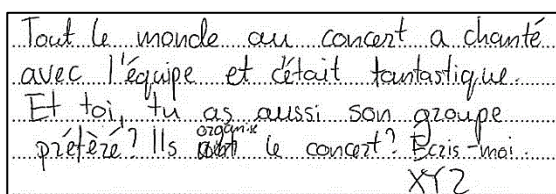 Tout le monde au concert a chanté
avec l'équipe et c'était tantastique.
Et toi, tu as aussi son groupe
prétèré? Ils organise le concert? Ecris-moi.
XYZ